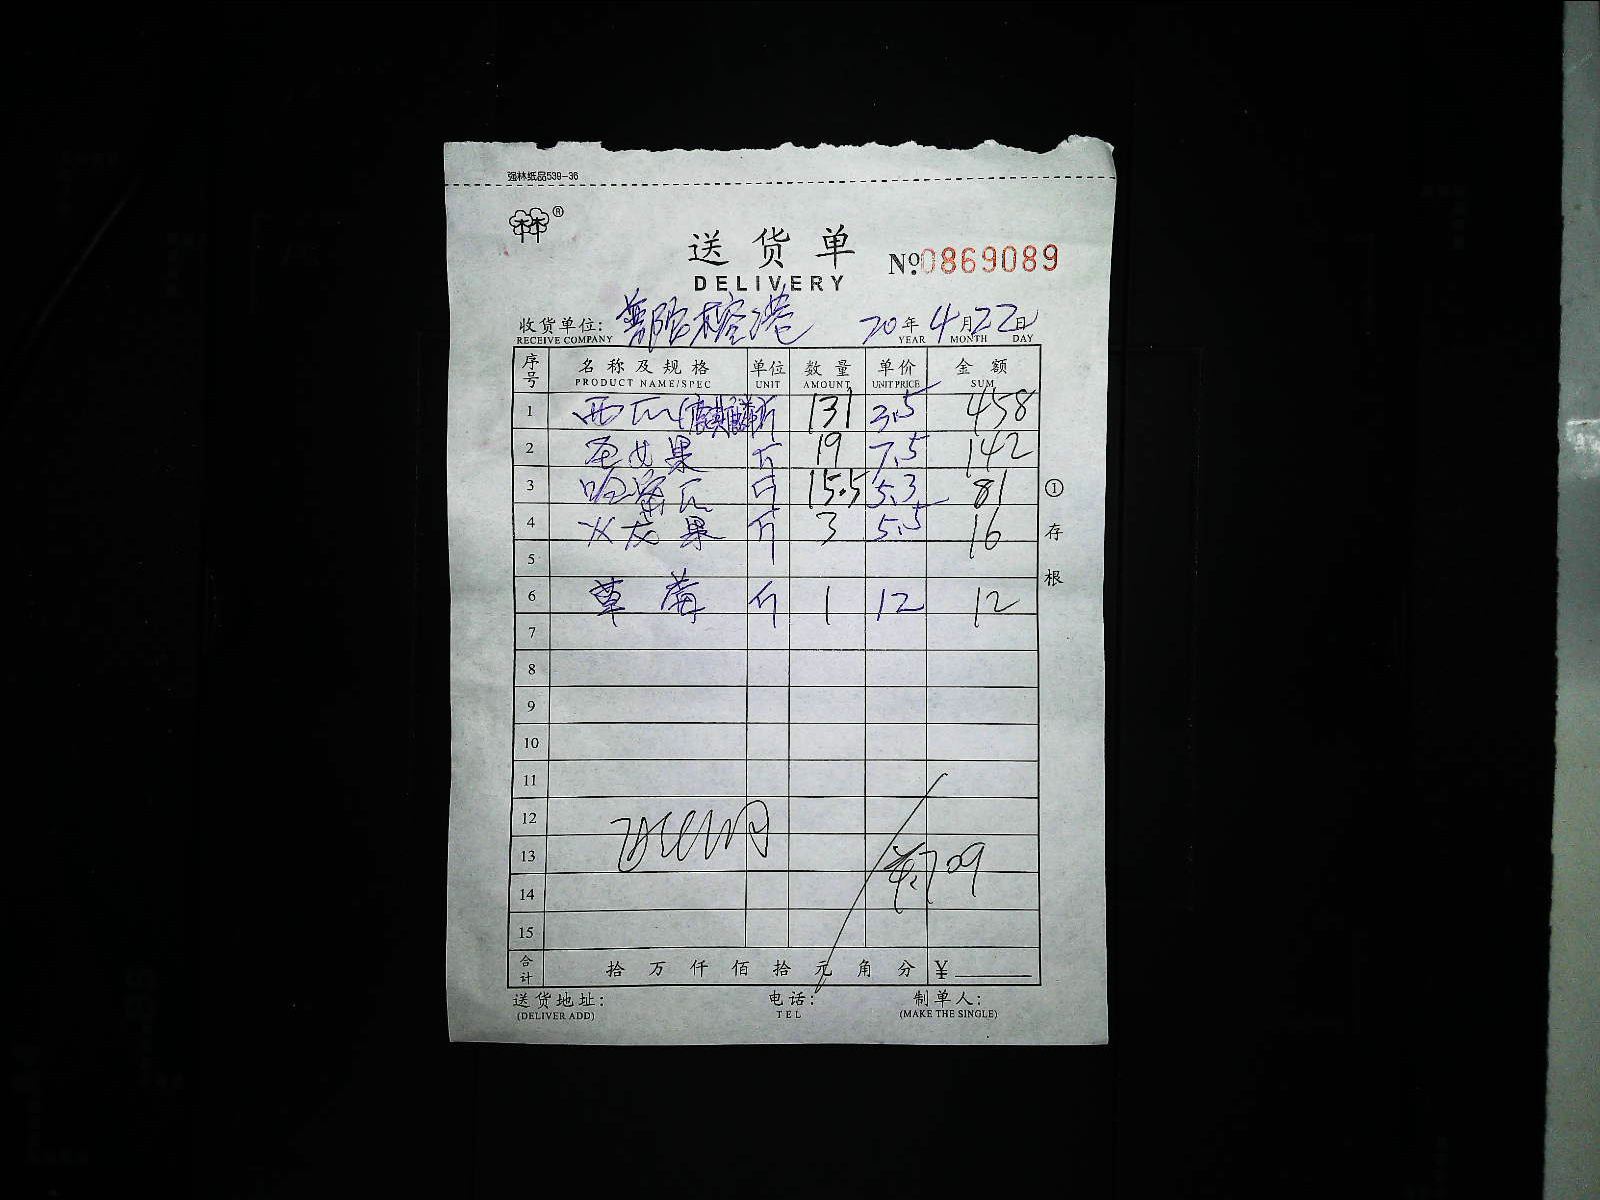 强林纸品539-36
林林®
送货单
No.0869089
DELIVERY
收货单位: 榕港 20年4月22日
RECEIVE COMPANY YEAR MONTH DAY
序号 名称及规格 单位 数量 单价 金额
PRODUCT NAME/SPEC UNIT AMOUNT UNIT PRICE SUM
1 西瓜(麒麟 斤 131 3.5 458
2 圣女果 斤 19 7.5 142
3 哈蜜瓜 斤 15.5 5.3 81
4 火龙果 斤 3 5.5 16
5
6 草莓 斤 1 12 12
7
8
9
10
11
12
13 709
14
15
合计 拾万仟佰拾元角分 ¥
①存根
送货地址: 电话: 制单人:
(DELIVER ADD) TEL (MAKE THE SINGLE)